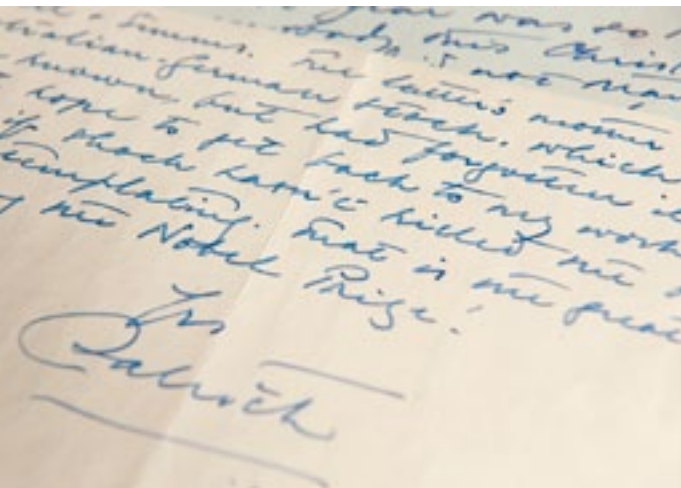 year was so
this Christ
is not
Simms. The latter's mother
tralian-German stock, which
known, but had forgotten i
hope to get back to my work
if shock hasn't killed me
templating. That is the great
the Nobel Prize!
Yrs
Patrick